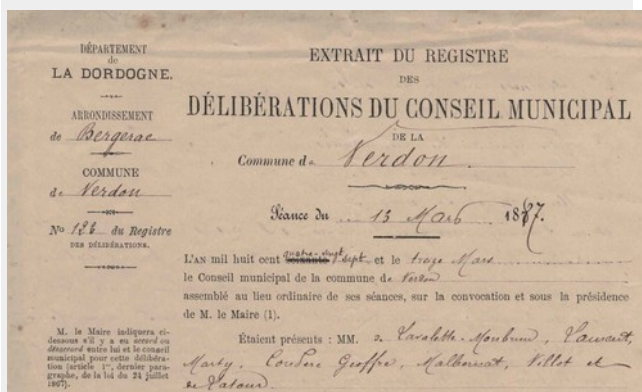 DÉPARTEMENT
de
LA DORDOGNE.
ARRONDISSEMENT
de Bergerac
COMMUNE
de Verdon
No 126 du Registre
DES DÉLIBÉRATIONS.
M. le Maire indiquera ci-
dessous s'il y a eu accord ou
désaccord entre lui et le conseil
municipal pour cette délibéra-
tion (article 1er, dernier para-
graphe, de la loi du 24 juillet
1867).
EXTRAIT DU REGISTRE
DES
DÉLIBÉRATIONS DU CONSEIL MUNICIPAL
DE LA
Commune de Verdon.
Séance du 13 Mars 1887.
quatre-vingt
L'AN mil huit cent sept et le treize Mars
le Conseil municipal de la commune de Verdon
assemblé au lieu ordinaire de ses séances, sur la convocation et sous la présidence
de M. le Maire (1).
Étaient présents : MM. de Lavalette-Monbrun, Laurant,
Marty, Couderc Geoffre, Malbernat, Villot et
de Latour